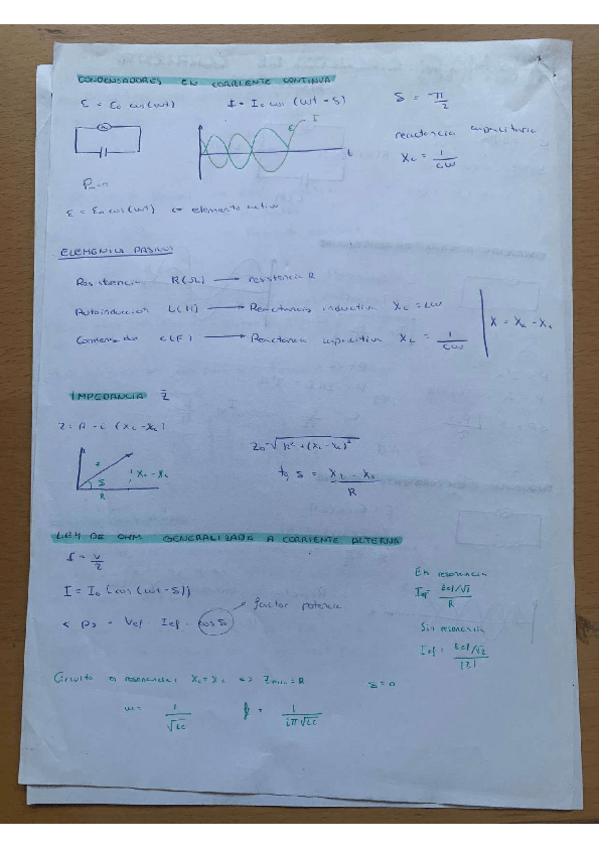 CONDENSADORES EN CORRIENTE CONTINUA
ε = ε₀ cos(ωt) I = I₀ cos (ωt - δ) δ = π/2
reactancia capacitaria
Xc = 1/Cω
I
ε
t
ε = ε₀ cos(ωt) elemento activo
ELEMENTOS PASIVOS
Resistencia R(Ω) → resistencia R
Autoinduccion L(H) → Reactancia inductiva X_L = Lω
Condensador C(F) → Reactancia capacitiva Xc = 1/Cω
IMPEDANCIA Z̄
Z₀ = √(R² + (X_L - Xc)²)
δ
R
LEY DE OHM GENERALIZADA A CORRIENTE ALTERNA
I = V/Z
I = I₀ [cos(ωt - δ)]
factor potencia
< P > = Vef · Ief · cos δ
En resonancia
Ief
R
Sin resonancia
Ief =
|Z|
Circuito en resonancia: Zmin = R δ = 0
ω = 1/√LC